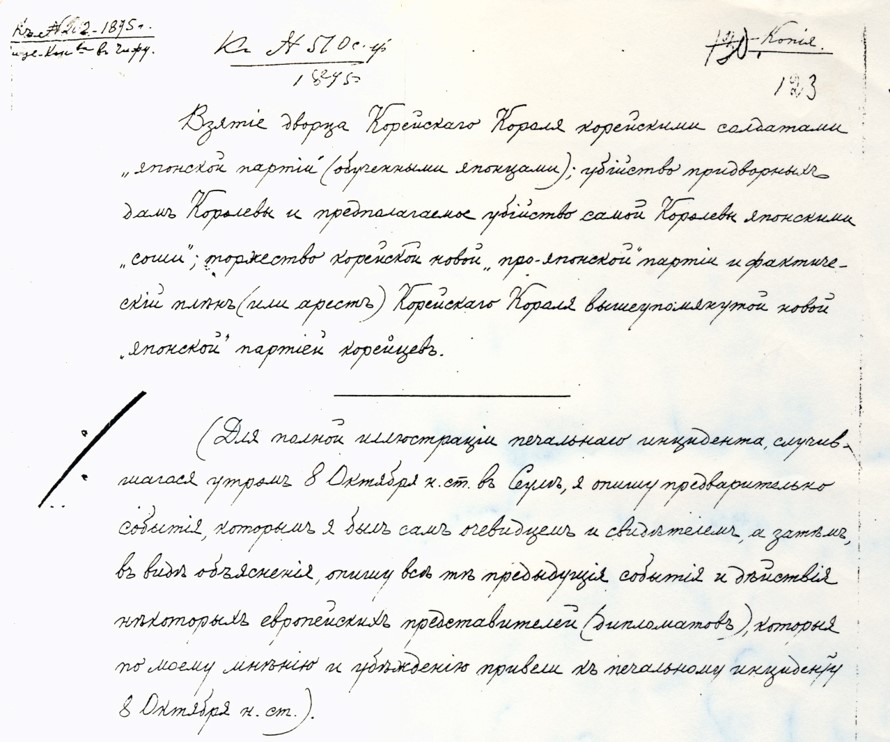 Къ № 202-1895 г.
въ Чифу.
Къ № 510 с. г.
1895
Копія.
123
Взятіе дворца Корейскаго Короля корейскими солдатами
„японской партіи“ (обученными японцами); убійство придворныхъ
дамъ Королевы и предполагаемое убійство самой Королевы японскими
„соши“; торжество корейской новой „про-японской“ партіи и фактиче-
скій плѣнъ (или арестъ) Корейскаго Короля вышеупомянутой новой
„японской“ партіей корейцевъ.
(Для полной иллюстраціи печальнаго инцидента, случив-
шагося утромъ 8 Октября н. ст. въ Сеулѣ, я опишу предварительно
событія, которымъ я былъ самъ очевидцемъ и свидѣтелемъ, а затѣмъ,
въ видѣ объясненія, опишу всѣ тѣ предыдущія событія и дѣйствія
нѣкоторыхъ европейскихъ представителей (дипломатовъ), которыя
по моему мнѣнію и убѣжденію привели къ печальному инциденту
8 Октября н. ст.).